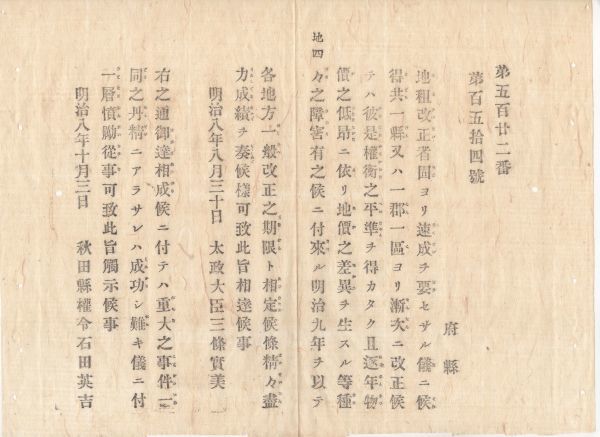 第五百廿二番
第百五拾四號
府縣
地租改正者固ヨリ速成ヲ要セサル儀ニ候
得共一縣又ハ一郡一區ヨリ漸次ニ改正候
テハ彼是權衡之平準ヲ得カタク且逐年物
價之低昻ニ依リ地價之差異ヲ生スル等種
々之障害有之候ニ付來ル明治九年ヲ以テ
地四
各地方一般改正之期限ト相定候條精々盡
力成績ヲ奏候樣可致此旨相達候事
明治八年八月三十日 太政大臣三條實美
右之通御達相成候ニ付テハ重大之事件一
同之丹精ニアラサレハ成功シ難キ儀ニ付
一層憤勵從事可致此旨觸示候事
明治八年十月三日 秋田縣權令石田英吉